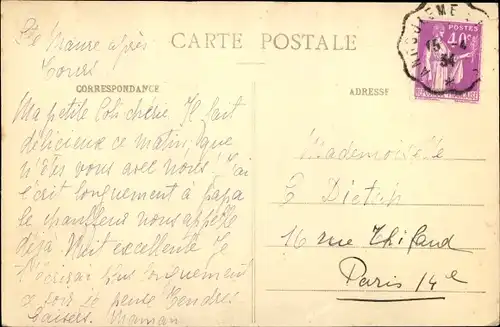 Ste Maure après
Tours
CARTE POSTALE
CORRESPONDANCE
ADRESSE
POSTES
40c
ANGOULEME
15 -4
34
Ma petite Loli chérie. Il fait
délicieux ce matin, que
n'êtes vous avec nous! J'ai
écrit longuement à papa
le chauffeur nous appelle
déjà. Nuit excellente Je
t'écrirai plus longuement
ce soir je pense Tendres
baisers. Maman
Mademoiselle
Dietsh
16 rue Thibaud
Paris 14e